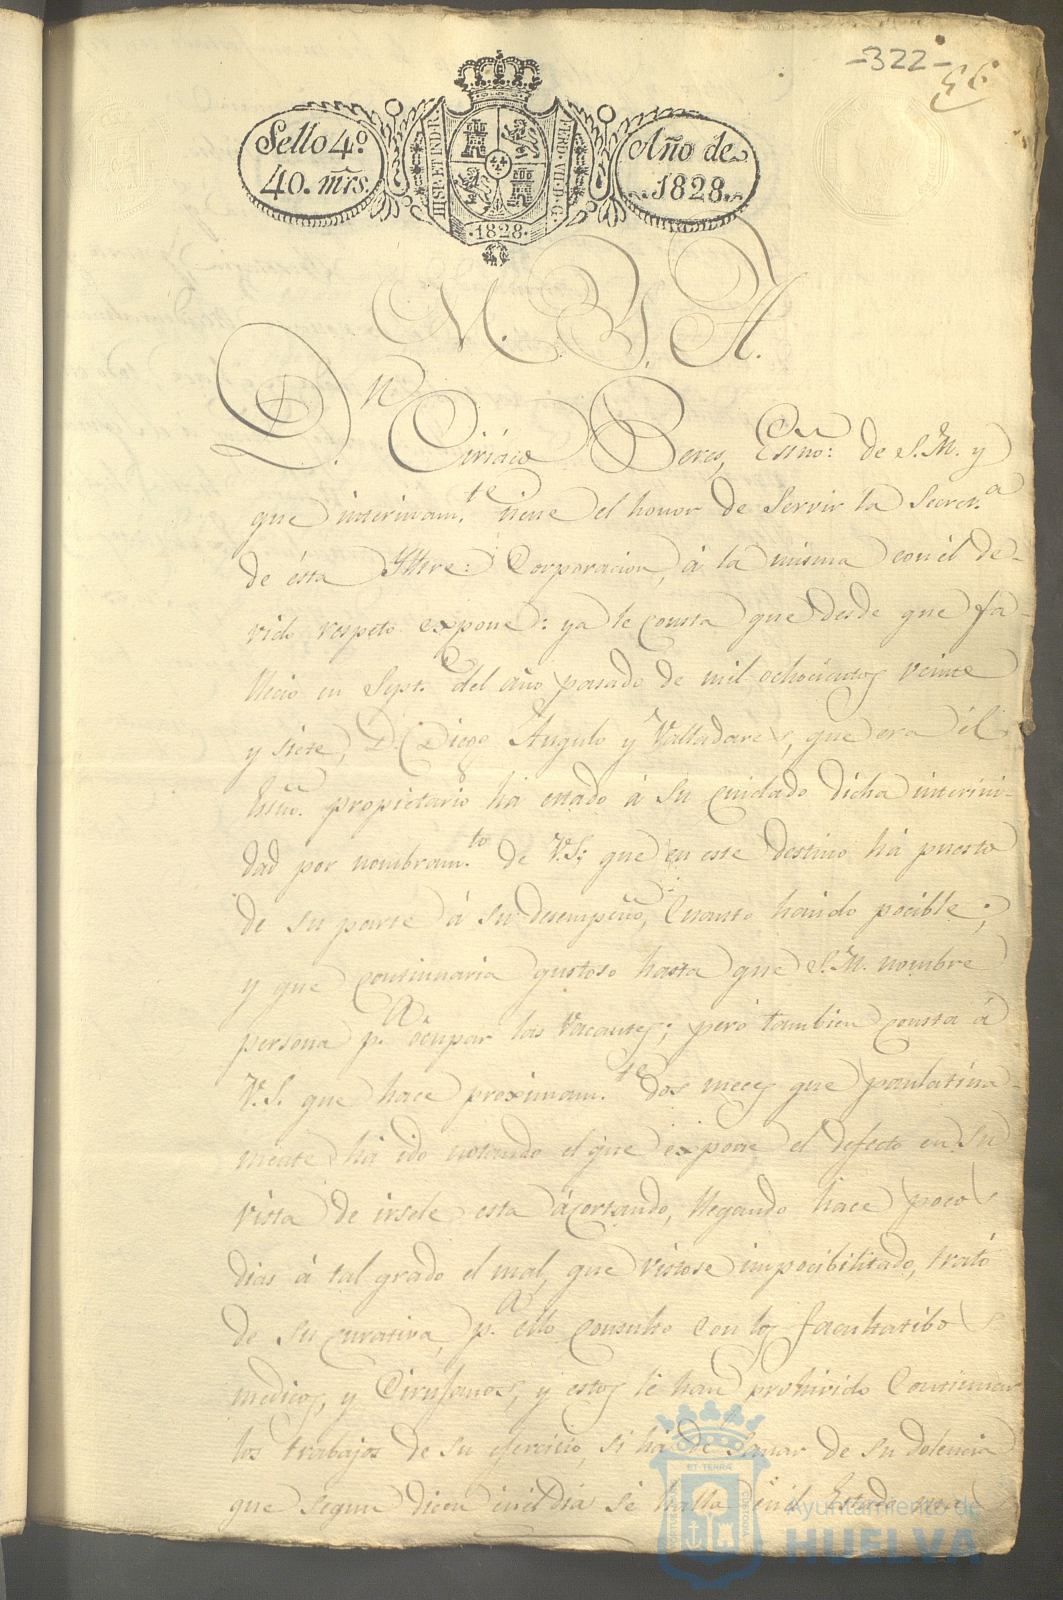 -322-
Sello 4º
40. mrs.
HISP. ET IND. R.
FERD. VII. D. G.
·1828·
Año de
1828.
M. Y. A.
D.n Ciriáco Beres, Essno: de S.M. y
que interinam.te tiene el honor de servir la Secret.a
de ésta Yltre: Corporacion, á la misma con él de-
vido respeto expone: ya le consta que desde que fa-
llecio en Sept.e del año pasado de mil ochocientos veinte
y siete, D. Diego Angulo y Valladares, que era él
Essno. propietario há estado á su cuidado dicha interini-
dad por nombram.to de V.S; que en este destino há puesto
de su parte á su desempeño, Cuanto haido pocible;
y que continuaria gustoso hasta que S.M. nombre
persona p.a ócupar las Vacantes; pero tambien consta á
V.S. que hace proximam.te dos meces que paulatina-
mente há ido notando el que expone el defecto en su
vista de irsele esta ácortando, llegando hace pocos
dias á tal grado el mal, que viendose impocibilitado, trató
de su curativa, p.a ello Consulto con los facultatibos
medicos, y Cirujanos, y estos le han prohivido Continuar
los trabajos de su ejercicio, si há de sanar de su dolencia
que segun dicen en él dia se halla en él Estado
ET TERRÆ
Ayuntamiento de
HUELVA